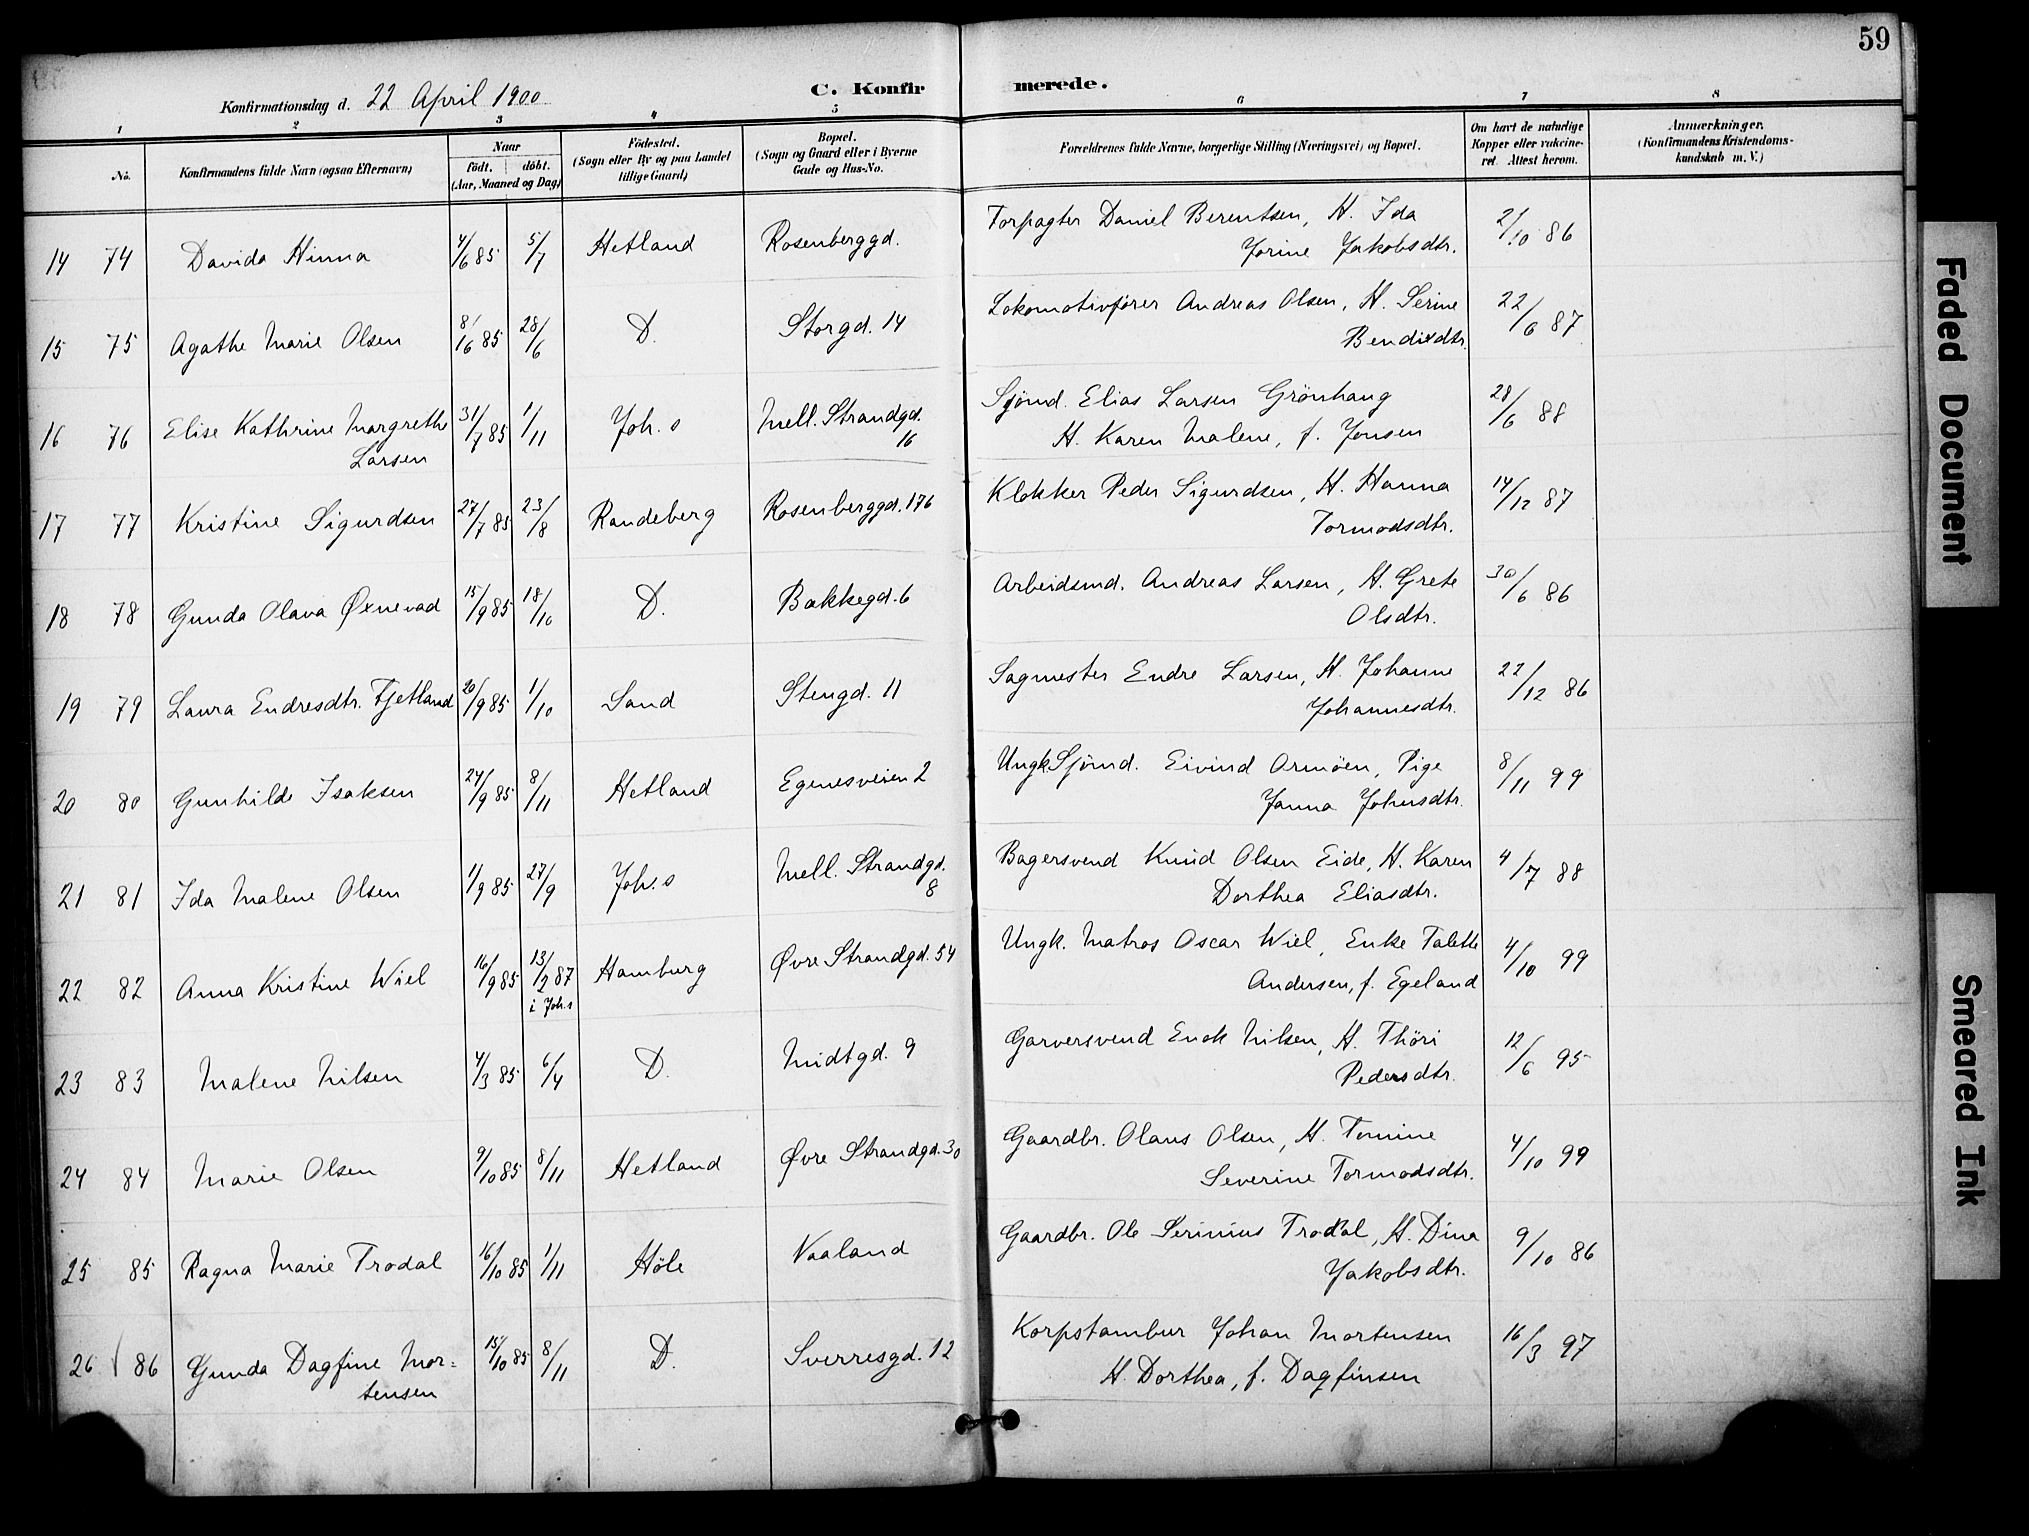 59
Konfirmationsdag d. 22 April 1900
C. Konfirmerede.
1 2 3 4 5 6 7 8
No.
Konfirmandens fulde Navn (ogsaa Efternavn)
Naar
födt. döbt.
(Aar, Maaned og Dag)
Födested.
(Sogn eller By og paa Landet
tillige Gaard)
Bopæl.
(Sogn og Gaard eller i Byerne
Gade og Hus-No.
Forældrenes fulde Navne, borgerlige Stilling (Næringsvei) og Bopæl.
Om havt de naturlige
Kopper eller vakcine-
ret. Attest herom.
Anmærkninger.
(Konfirmandens Kristendoms-
kundskab m. V.)
14 74 Davida Hinna 4/6 85 5/7 Hetland Rosenberggd. Torpagter Daniel Berentsen, H. Ida
Jorine Jakobsdtr. 2/10 86
15 75 Agathe Marie Olsen 8/6 85 28/6 D. Storgd. 14 Lokomotivfører Andreas Olsen, H. Serine
Bendixdtr. 22/6 87
16 76 Elise Kathrine Margrethe
Larsen 31/7 85 1/11 Joh.s Mell. Strandgd.
16 Sjömd. Elias Larsen Grönhaug
H. Karen Malene, f. Jonsen 28/6 88
17 77 Kristine Sigurdsen 27/7 85 23/8 Randeberg Rosenberggd. 176 Klokker Peder Sigurdsen, H. Hanna
Tormodsdtr. 14/12 87
18 78 Gunda Olava Øxnevad 15/9 85 18/10 D. Bakkegd. 6 Arbeidsmd. Andreas Larsen, H. Grete
Olsdtr. 30/6 86
19 79 Laura Endresdtr. Fjetland 20/9 85 1/10 Sand Stengd. 11 Sagmester Endre Larsen, H. Johanne
Johannesdtr. 22/12 86
20 80 Gunhilde Isaksen 24/9 85 8/11 Hetland Egenesveien 2 Ungk. Sjömd. Eivind Armöen, Pige
Janna Johnsdtr. 8/11 99
21 81 Ida Malene Olsen 1/9 85 27/9 Joh.s Mell. Strandgd.
8 Bagersvend Knud Olsen Eide, H. Karen
Dorthea Eliasdtr. 4/7 88
22 82 Anna Kristine Wiel 16/9 85 13/2 87
i Joh.s Hamburg Øvre Strandgd. 54 Ungk. Matros Oscar Wiel, Enke Talette
Andersen, f. Egeland 4/10 99
23 83 Malene Nilsen 4/3 85 6/4 D. Midtgd. 9 Garversvend Enok Nilsen, H. Thöri
Pedersdtr. 12/6 95
24 84 Marie Olsen 9/10 85 8/11 Hetland Øvre Strandgd. 30 Gaardbr. Olaus Olsen, H. Tomine
Severine Tormodsdtr. 4/10 99
25 85 Ragna Marie Trodal 16/10 85 1/11 Höle Vaaland Gaardbr. Ole Serinius Trodal, H. Dina
Jakobsdtr. 9/10 86
26 86 Gunda Dagfine Mor=
tensen 15/10 85 8/11 D. Sverresgd. 12 Korpstambur Johan Mortensen
H. Dorthea, f. Dagfinsen 16/3 97
Faded Document
Smeared Ink